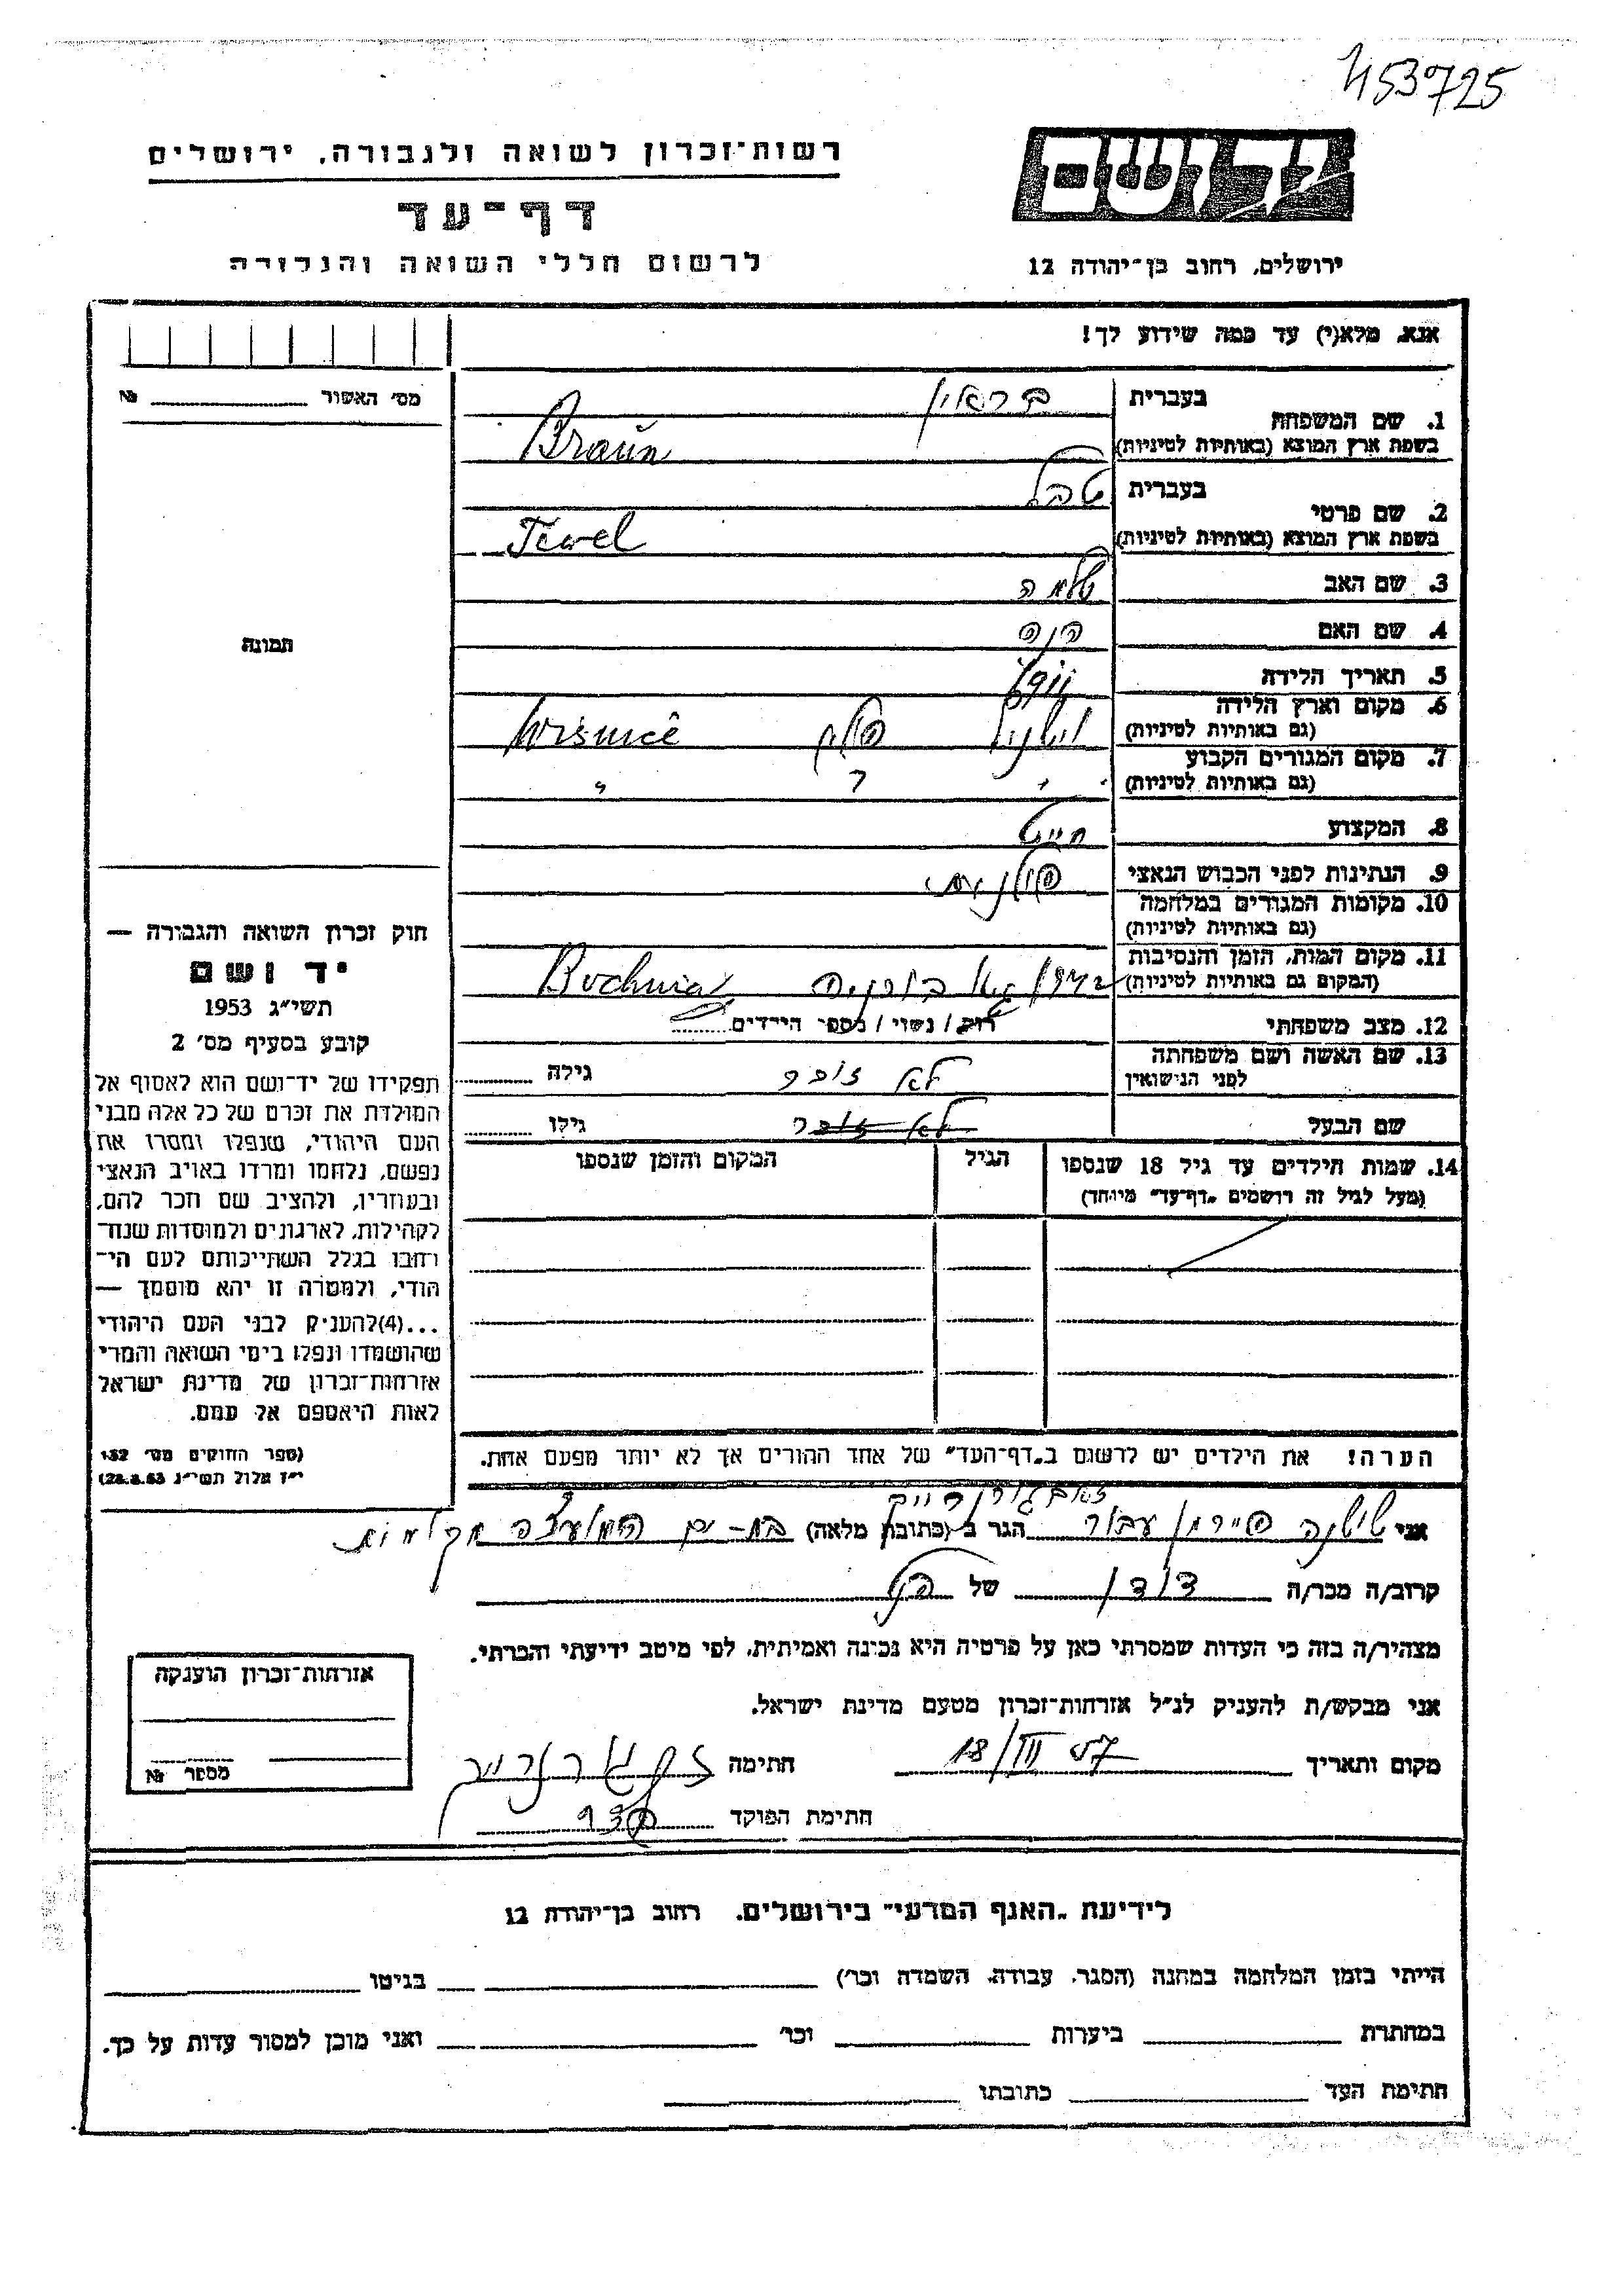 453725
יד ושם
רשות־זכרון לשואה ולגבורה, ירושלים
דף־עד
לרשום חללי השואה והגבורה
ירושלים, רחוב בן־יהודה 12
אנא, מלא(י) עד כמה שידוע לך!
מס׳ האשור №
1. שם המשפחה
בעברית בראון
בשפת ארץ המוצא (באותיות לטיניות) Braun
2. שם פרטי
בעברית טבל
בשפת ארץ המוצא (באותיות לטיניות) Tewel
3. שם האב שלמה
4. שם האם הנה
תמונה
5. תאריך הלידה
6. מקום וארץ הלידה
(גם באותיות לטיניות) פולין
7. מקום המגורים הקבוע
(גם באותיות לטיניות) " "
8. המקצוע חייט
9. הנתינות לפני הכבוש הנאצי פולנית
10. מקומות המגורים במלחמה
(גם באותיות לטיניות)
11. מקום המות, הזמן והנסיבות
(המקום גם באותיות לטיניות) בוכניה Bochnia
12. מצב משפחתי רוק / נשוי / מספר הילדים
13. שם האשה ושם משפחתה
לפני הנישואין לא זוכר גילה
שם הבעל לא זוכר גילו
14. שמות הילדים עד גיל 18 שנספו
(מעל לגיל זה רושמים „דף־עד" מיוחד)
הגיל
המקום והזמן שנספו
הערה! את הילדים יש לרשום ב„דף־העד" של אחד ההורים אך לא יותר מפעם אחת.
חוק זכרון השואה והגבורה —
יד ושם
תשי״ג 1953
קובע בסעיף מס׳ 2
תפקידו של יד־ושם הוא לאסוף אל
המולדת את זכרם של כל אלה מבני
העם היהודי, שנפלו ומסרו את
נפשם, נלחמו ומרדו באויב הנאצי
ובעוזריו, ולהציב שם וזכר להם,
לקהילות, לארגונים ולמוסדות שנח־
רבו בגלל השתייכותם לעם הי־
הודי, ולמטרה זו יהא מוסמך —
...(4)להעניק לבני העם היהודי
שהושמדו ונפלו בימי השואה והמרי
אזרחות־זכרון של מדינת ישראל
לאות היאספם אל עמם.
(ספר החוקים מס׳ 132
י״ז אלול תשי״ג 28.8.53)
אני שושנה פיירמן עבור הגר ב (כתובת מלאה) בת-ים
קרוב/ה מכר/ה דודן של הנ"ל
מצהיר/ה בזה כי העדות שמסרתי כאן על פרטיה היא נכונה ואמיתית, לפי מיטב ידיעתי והכרתי.
אני מבקש/ת להעניק לנ״ל אזרחות־זכרון מטעם מדינת ישראל.
מקום ותאריך 18/III 57 חתימה
חתימת הפוקד
אזרחות־זכרון הוענקה
מספר №
לידיעת „האגף המדעי" בירושלים, רחוב בן־יהודה 12
הייתי בזמן המלחמה במחנה (הסגר, עבודה, השמדה וכר׳) בגיטו
במחתרת ביערות וכר׳ ואני מוכן למסור עדות על כך.
חתימת העד כתובתו